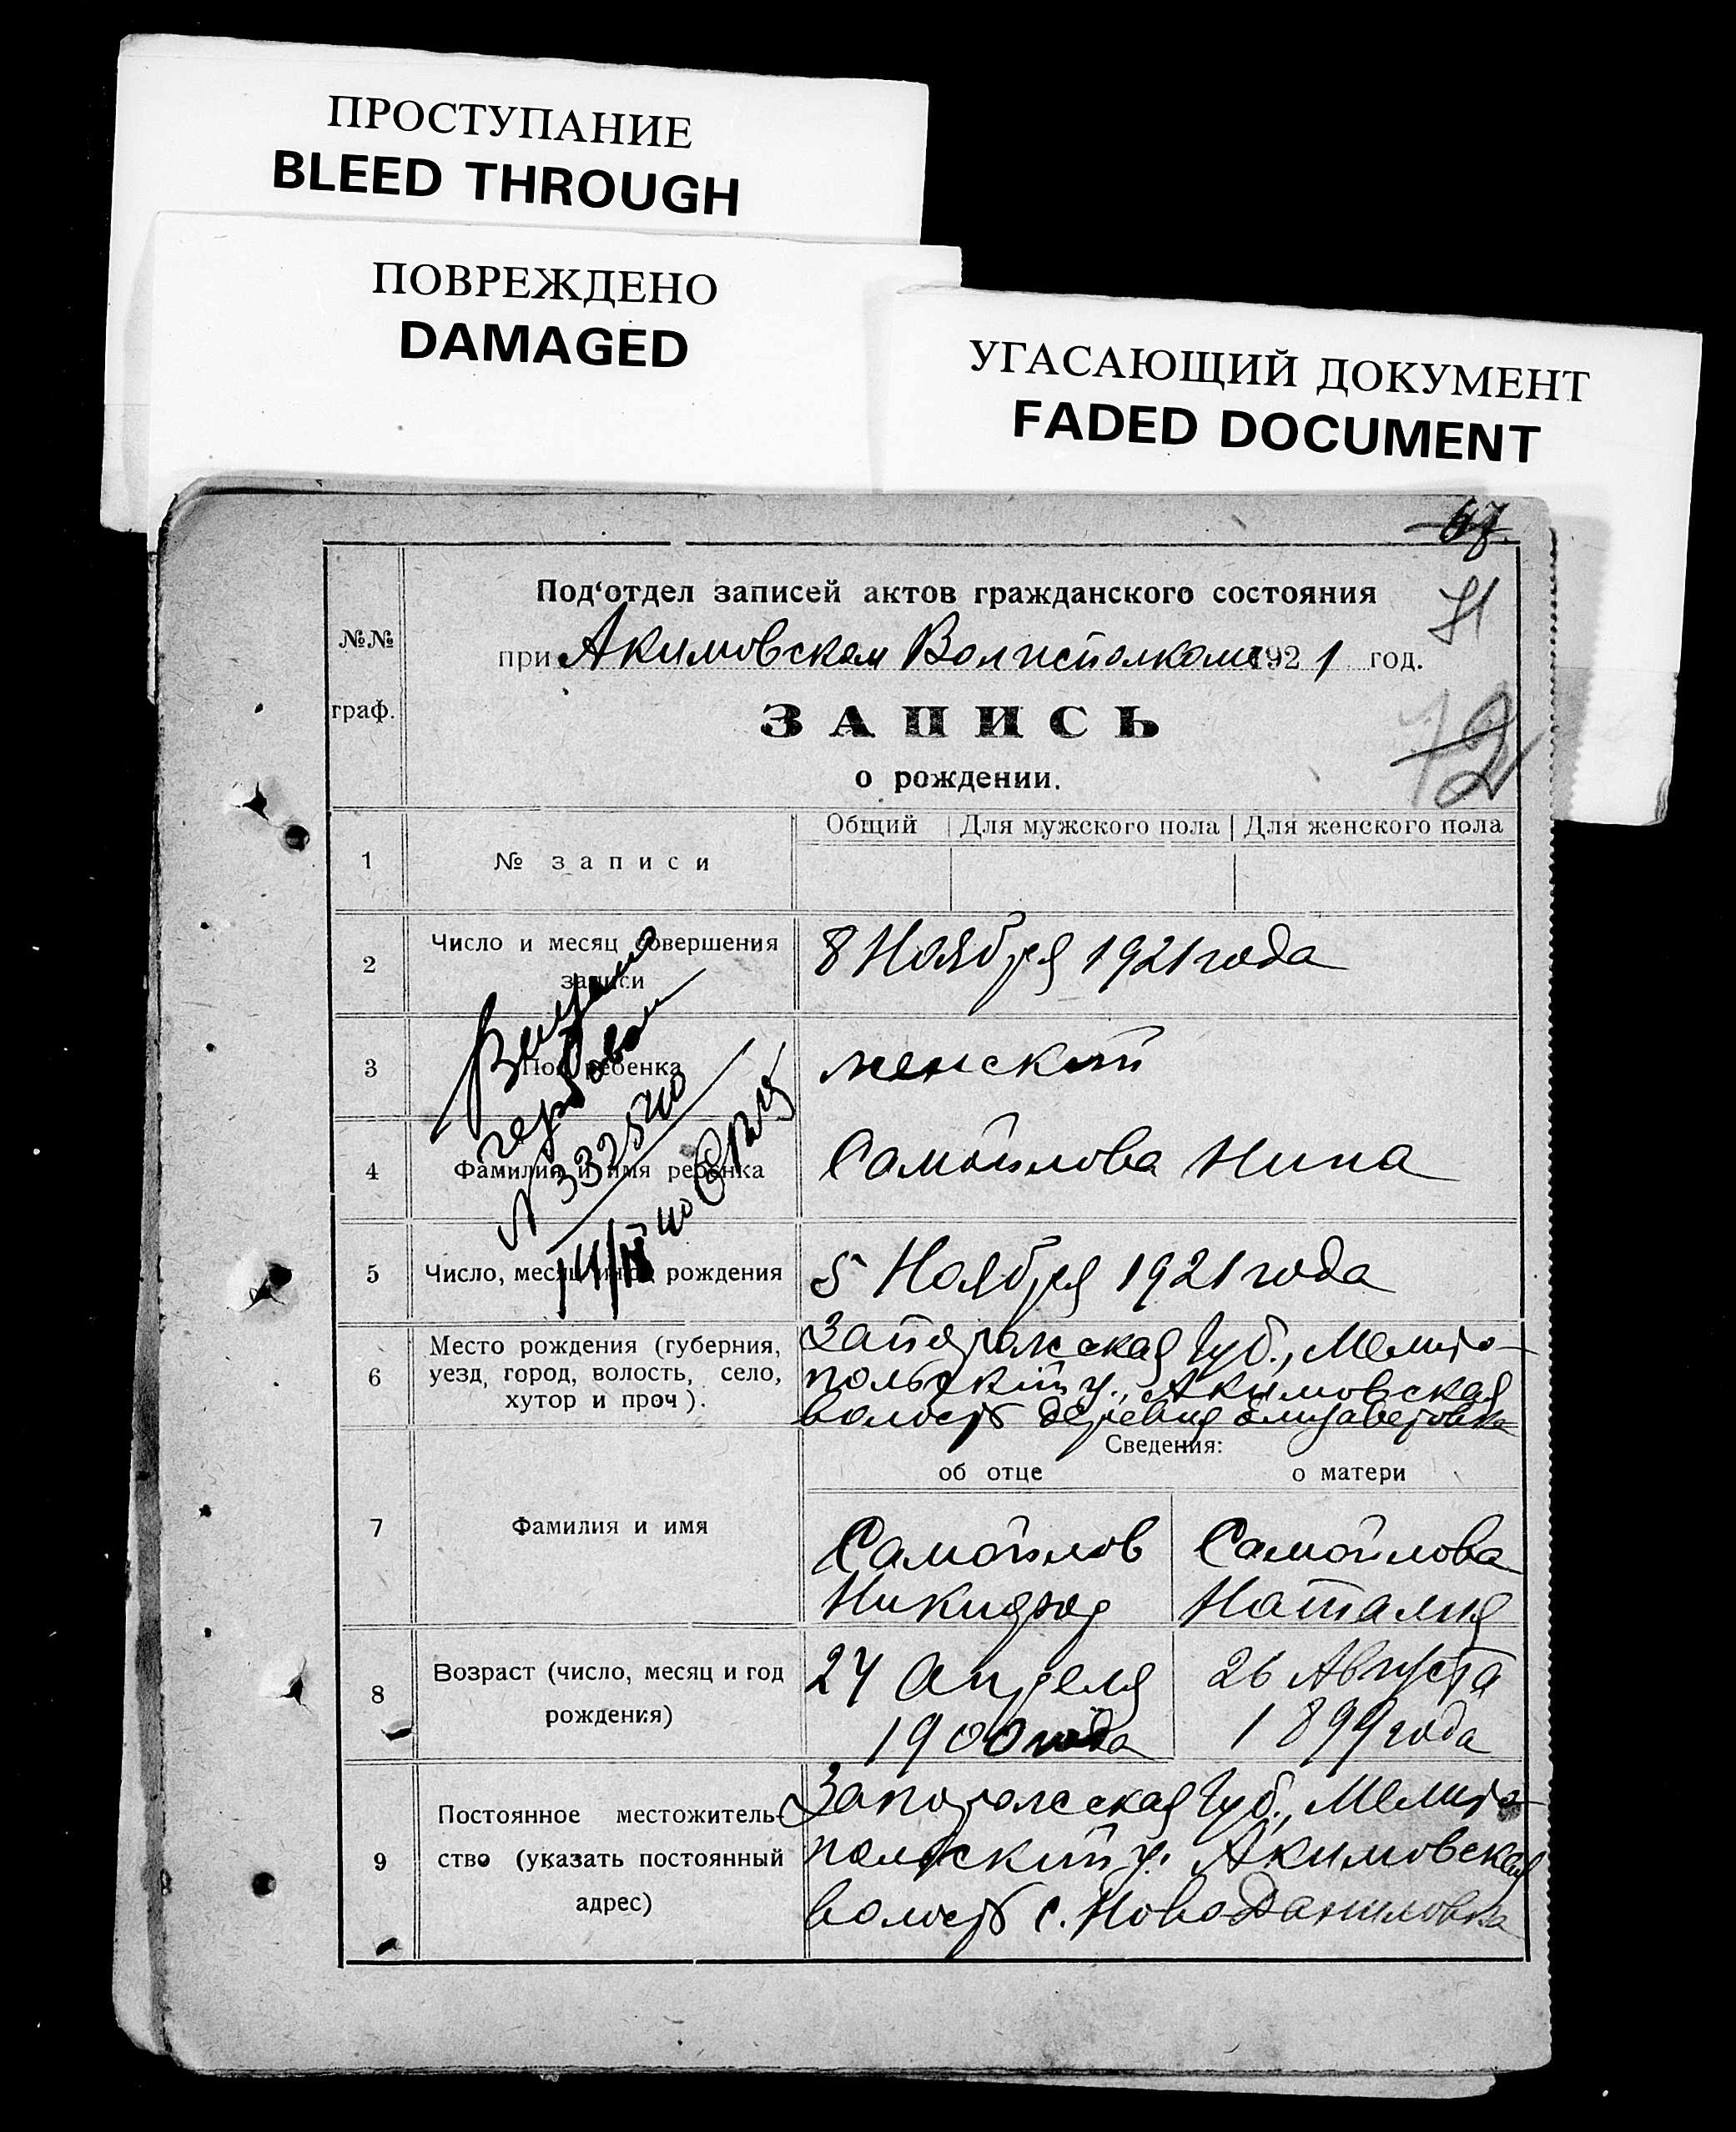 ПРОСТУПАНИЕ
BLEED THROUGH
ПОВРЕЖДЕНО
DAMAGED
УГАСАЮЩИЙ ДОКУМЕНТ
FADED DOCUMENT
67.
71
72
№№
граф.
Под‘отдел записей актов гражданского состояния
при Акимовском Волисполкоме 1921 год.
ЗАПИСЬ
о рождении.
Общий Для мужского пола Для женского пола
1 № записи
2 Число и месяц совершения
записи
8 Ноября 1921 года
3 Пол ребенка
женский
4 Фамилия и имя ребенка
Самойлова Нина
5 Число, месяц и год рождения
5 Ноября 1921 года
№ 332540
6 Место рождения (губерния,
уезд, город, волость, село,
хутор и проч).
Запорожская Губ., Мелито-
польский у., Акимовская
волость деревня Елизаветовка
Сведения:
об отце о матери
7 Фамилия и имя
Самойлов
Никифор
Самойлова
Наталия
8 Возраст (число, месяц и год
рождения)
24 Апреля
1900 года
26 Августа
1899 года
9 Постоянное местожитель-
ство (указать постоянный
адрес)
Запорожская Губ., Мелито-
польский у. Акимовская
волость с. НовоДаниловка